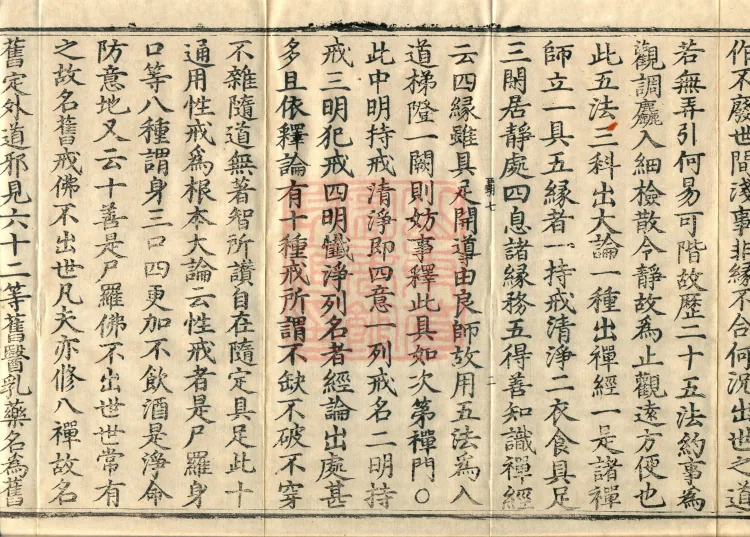 作不廢世間淺事非緣不合何況出世之道
若無弄引何易可階故歷二十五法約事為
觀調麤入細檢散令靜故為止觀遠方便也
此五法三科出大論一種出禪經一是諸禪
師立一具五緣者一持戒清淨二衣食具足
三閑居靜處四息諸緣務五得善知識禪經
云四緣雖具足開導由良師故用五法為入
道梯隥一闕則妨事釋此具如次第禪門〇
此中明持戒清淨即四意一列戒名二明持
戒三明犯戒四明懺淨列名者經論出處甚
多且依釋論有十種戒所謂不缺不破不穿
不雜隨道無著智所讚自在隨定具足此十
通用性戒為根本大論云性戒者是尸羅身
口等八種謂身三口四更加不飲酒是淨命
防意地又云十善是尸羅佛不出世世常有
之故名舊戒佛不出世凡夫亦修八禪故名
舊定外道邪見六十二等舊醫乳藥名為舊